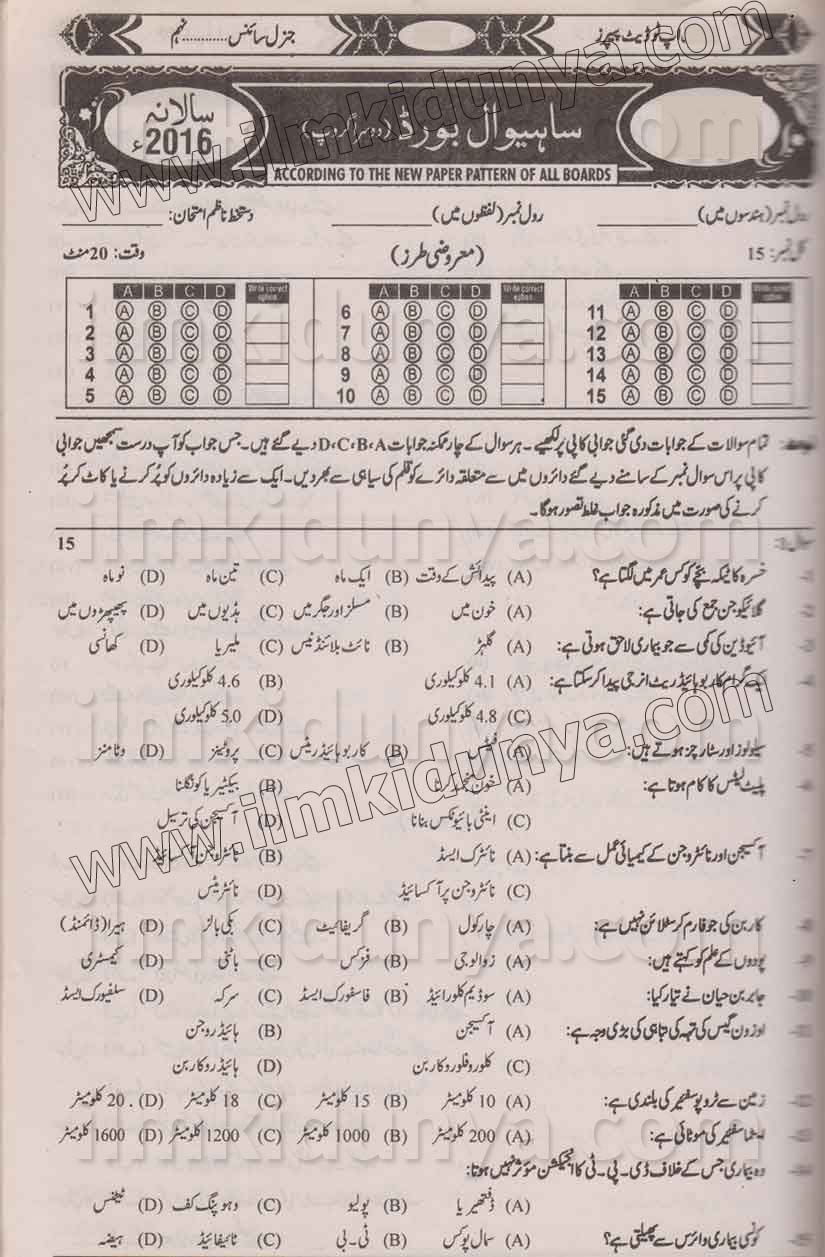 اپ ٹو ڈیٹ پیپرز
جنرل سائنس............نہم
ساہیوال بورڈ (دوسرا گروپ)
سالانہ
2016ء
ACCORDING TO THE NEW PAPER PATTERN OF ALL BOARDS
رول نمبر (ہندسوں میں)__________ رول نمبر (لفظوں میں)__________ دستخط ناظم امتحان: __________
کل نمبر: 15 (معروضی طرز) وقت: 20 منٹ
A B C D Write correct option A B C D Write correct option A B C D Write correct option
1 Ⓐ Ⓑ Ⓒ Ⓓ 6 Ⓐ Ⓑ Ⓒ Ⓓ 11 Ⓐ Ⓑ Ⓒ Ⓓ
2 Ⓐ Ⓑ Ⓒ Ⓓ 7 Ⓐ Ⓑ Ⓒ Ⓓ 12 Ⓐ Ⓑ Ⓒ Ⓓ
3 Ⓐ Ⓑ Ⓒ Ⓓ 8 Ⓐ Ⓑ Ⓒ Ⓓ 13 Ⓐ Ⓑ Ⓒ Ⓓ
4 Ⓐ Ⓑ Ⓒ Ⓓ 9 Ⓐ Ⓑ Ⓒ Ⓓ 14 Ⓐ Ⓑ Ⓒ Ⓓ
5 Ⓐ Ⓑ Ⓒ Ⓓ 10 Ⓐ Ⓑ Ⓒ Ⓓ 15 Ⓐ Ⓑ Ⓒ Ⓓ
تمام سوالات کے جوابات دی گئی جوابی کاپی پر لکھیے۔ ہر سوال کے چار ممکنہ جوابات D،C،B،A دیے گئے ہیں۔ جس جواب کو آپ درست سمجھیں جوابی
کاپی پر اس سوال نمبر کے سامنے دیے گئے دائروں میں سے متعلقہ دائرے کو قلم کی سیاہی سے بھر دیں۔ ایک سے زیادہ دائروں کو پُر کرنے یا کاٹ کر پُر
کرنے کی صورت میں مذکورہ جواب غلط تصور ہوگا۔
سوال 1: 15
خسرہ کا ٹیکہ بچے کو کس عمر میں لگتا ہے؟ (A) پیدائش کے وقت (B) ایک ماہ (C) تین ماہ (D) نو ماہ
گلائیکوجن جمع کی جاتی ہے: (A) خون میں (B) مسلز اور جگر میں (C) ہڈیوں میں (D) پھیپھڑوں میں
آئیوڈین کی کمی سے جو بیماری لاحق ہوتی ہے: (A) گلہڑ (B) نائٹ بلائنڈنیس (C) ملیریا (D) کھانسی
ایک گرام کاربوہائیڈریٹ انرجی پیدا کر سکتا ہے: (A) 4.1 کلوکیلوری (B) 4.6 کلوکیلوری
(C) 4.8 کلوکیلوری (D) 5.0 کلوکیلوری
سیلولوز اور سٹارچز ہوتے ہیں: (A) فیٹس (B) کاربوہائیڈریٹس (C) پروٹینز (D) وٹامنز
پلیٹ لیٹس کا کام ہوتا ہے: (A) خون منجمد کرنا (B) بیکٹیریا کو نگلنا
(C) اینٹی بائیوٹکس بنانا (D) آکسیجن کی ترسیل
آکسیجن اور نائٹروجن کے کیمیائی عمل سے بنتا ہے: (A) نائٹرک ایسڈ (B) نائٹروجن آکسائیڈ
(C) نائٹروجن پر آکسائیڈ (D) نائٹریٹس
کاربن کی جو فارم کرسٹلائن نہیں ہے: (A) چارکول (B) گریفائیٹ (C) بکی بالز (D) ہیرا (ڈائمنڈ)
پودوں کے علم کو کہتے ہیں: (A) زوالوجی (B) فزکس (C) باٹنی (D) کیمسٹری
جابر بن حیان نے تیار کیا: (A) سوڈیم کلورائیڈ (B) فاسفورک ایسڈ (C) سرکہ (D) سلفیورک ایسڈ
اوزون گیس کی تہہ کی تباہی کی بڑی وجہ ہے: (A) آکسیجن (B) ہائیڈروجن
(C) کلوروفلوروکاربن (D) ہائیڈروکاربن
زمین سے ٹروپوسفیئر کی بلندی ہے: (A) 10 کلومیٹر (B) 15 کلومیٹر (C) 18 کلومیٹر (D) 20 کلومیٹر
کی موٹائی ہے: (A) 200 کلومیٹر (B) 1000 کلومیٹر (C) 1200 کلومیٹر (D) 1600 کلومیٹر
وہ بیماری جس کے خلاف ڈی۔پی۔ٹی کا انجیکشن مؤثر نہیں ہوتا:
(A) ڈفتھیریا (B) پولیو (C) وہوپنگ کف (D) ٹیٹنس
کونسی بیماری وائرس سے پھیلتی ہے؟ (A) سمال پوکس (B) ٹی۔بی (C) ٹائیفائیڈ (D) ہیضہ
www.ilmkidunya.com
ilmkidunya.com
ilmkidunya.com
ilmkidunya.com
www.ilmkidunya.com
ilmkidunya.com
ilmkidunya.com